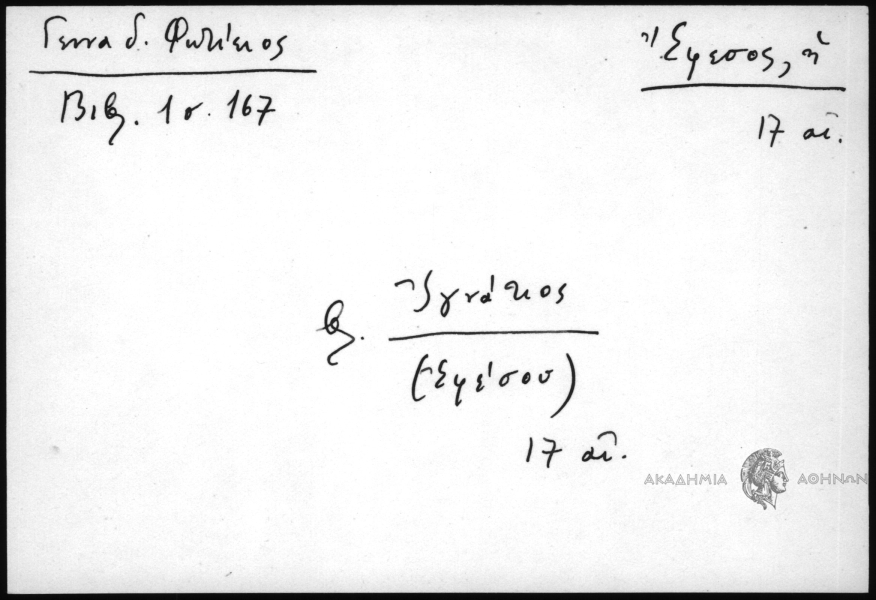 Γενναδ. Φωτίειος
Βιβλ. 1 σ. 167
Ἔφεσος, ἡ
17 αἰ.
βλ. Ἰγνάτιος
(Ἐφέσου)
17 αἰ.
ΑΚΑΔΗΜΙΑ ΑΘΗΝΩΝ